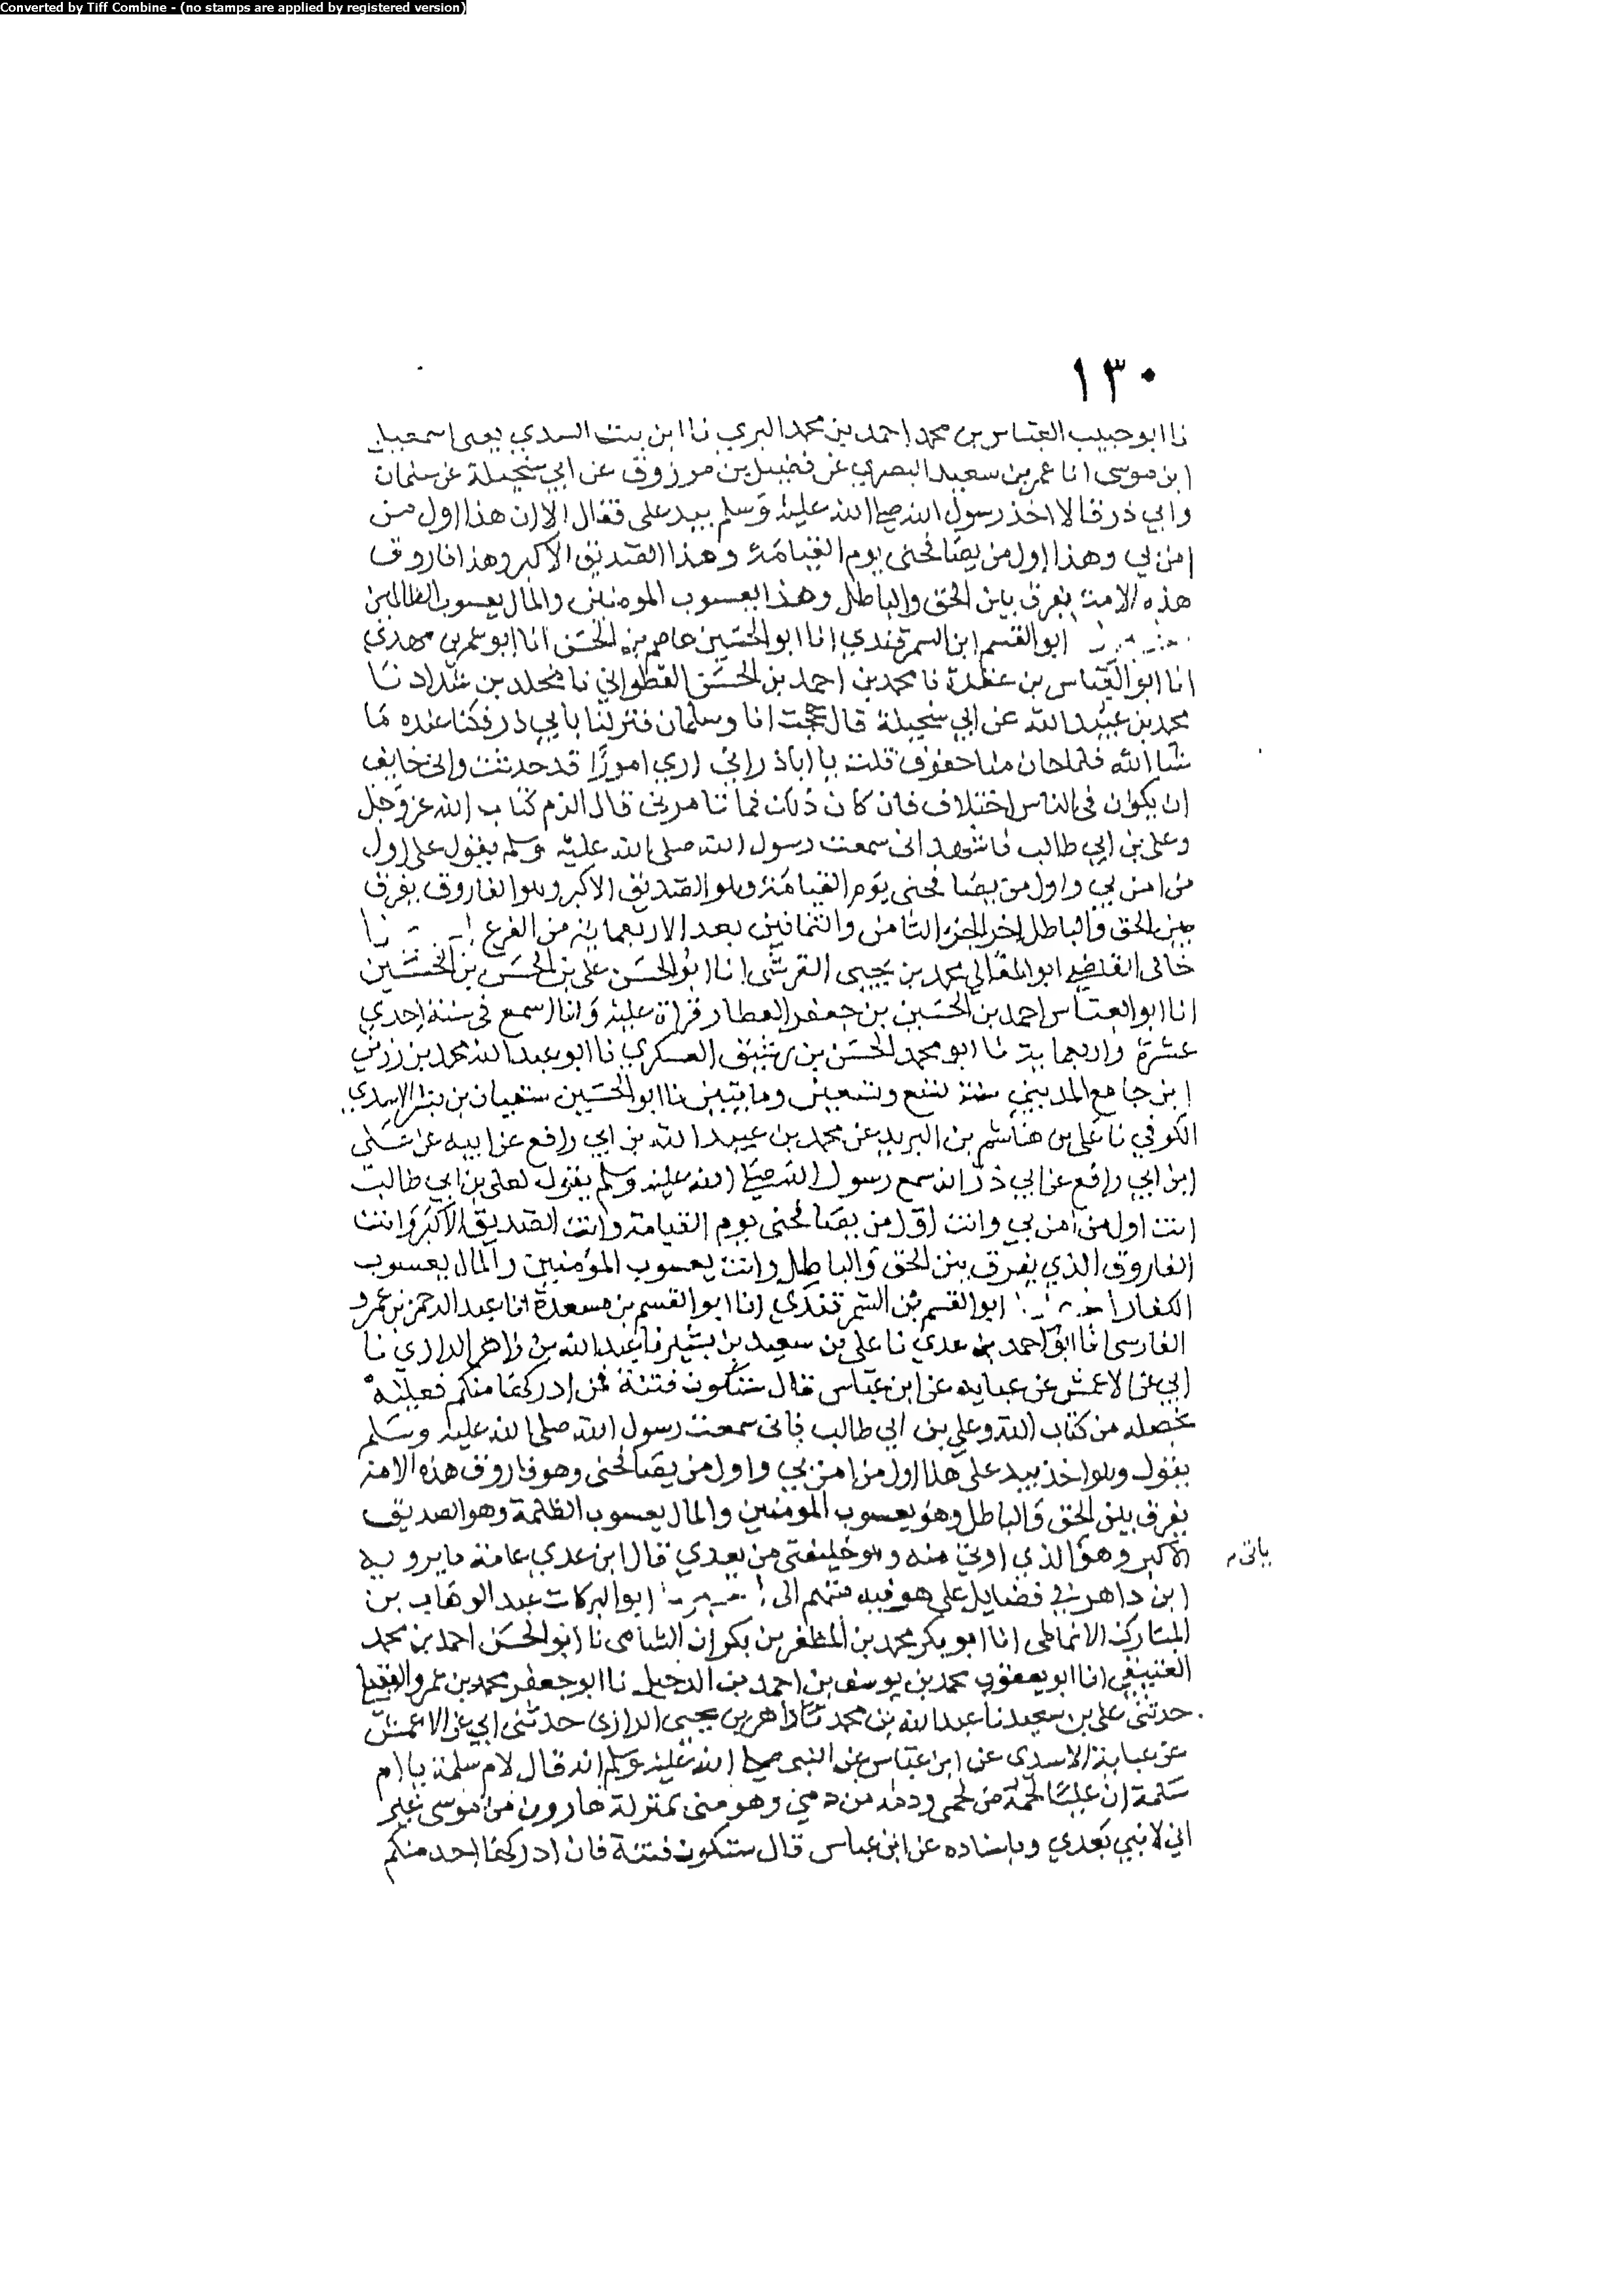 Converted by Tiff Combine - (no stamps are applied by registered version)
١٣٠
نا ابو حبيب العباس بن محمد احمد بن محمد البري نا ابن بنت السدي يعني اسمعيل
ابن موسى انا عمر بن سعيد البصري عن فضيل بن مرزوق عن ابي سخيلة عن سلمان
وابي ذر قالا اخذ رسول الله صلى الله عليه وسلم بيد علي فقال الا ان هذا اول من
امن بي وهذا اول من يصافحني يوم القيامة وهذا الصديق الاكبر وهذا فاروق
هذه الامة يفرق بين الحق والباطل وهذا يعسوب المومنين والمال يعسوب الظالمين
ابو القسم ابن السمرقندي انا ابو الحسين عاصم بن الحسن انا ابو عمر بن مهدي
انا ابو العباس بن عقدة نا محمد بن احمد بن الحسن القطواني نا مخلد بن شداد نا
محمد بن عبيد الله عن ابي سخيلة قال حججت انا وسلمان فنزلنا بابي ذر فكنا عنده ما
شا الله فلما حان منا خفوف قلت يا ابا ذر اني اري امورا قد حدثت واني خايف
ان يكون في الناس اختلاف فان كان ذلك فما تامرني قال الزم كتاب الله عز وجل
وعلي بن ابي طالب فاشهد اني سمعت رسول الله صلى الله عليه وسلم يقول علي اول
من امن بي واول من يصافحني يوم القيامة وهو الصديق الاكبر وهو الفاروق يفرق
بين الحق والباطل اخر الجزء الثامن والثمانين بعد الاربعماية من الفرع نا
خالي القاضي ابو المعالي محمد بن يحيى القرشي انا ابو الحسن علي بن الحسن بن الحسين
انا ابو العباس احمد بن الحسين بن جعفر العطار قراة عليه وانا اسمع في سنة احدي
عشرة واربعماية نا ابو محمد الحسن بن رشيق العسكري نا ابو عبد الله محمد بن رزين
ابن جامع المديني سنة تسع وتسعين ومايتين نا ابو الحسين سفيان بن بشر الاسدي
الكوفي نا علي بن هاشم بن البريد عن محمد بن عبيد الله بن ابي رافع عن ابيه عن علي
ابن ابي رافع عن ابي ذر انه سمع رسول الله صلى الله عليه وسلم يقول لعلي بن ابي طالب
انت اول من امن بي وانت اول من يصافحني يوم القيامة وانت الصديق الاكبر وانت
الفاروق الذي يفرق بين الحق والباطل وانت يعسوب المؤمنين والمال يعسوب
الكفار ابو القسم بن السمرقندي انا ابو القسم بن مسعدة انا عبد الرحمن بن عمرو
الفارسي انا ابو احمد بن عدي نا علي بن سعيد بن بشير نا عبد الله بن داهر الرازي نا
ابي عن الاعمش عن عباية عن ابن عباس قال ستكون فتنة فمن ادركها منكم فعليه
بخصلة من كتاب الله وعلي بن ابي طالب فاني سمعت رسول الله صلى الله عليه وسلم
يقول وهو اخذ بيد علي هذا اول من امن بي واول من يصافحني وهو فاروق هذه الامة
يفرق بين الحق والباطل وهو يعسوب المومنين والمال يعسوب الظلمة وهو الصديق
الاكبر وهو الذي اوتى منه وهو خليفتي من بعدي قال ابن عدي عامة ما يرويه
ابن داهر في فضايل علي هو فيه متهم ابو البركات عبد الوهاب بن
المبارك الانماطي انا ابو بكر محمد بن المظفر بن بكران الشامي نا ابو الحسن احمد بن محمد
العتيقي انا ابو يعقوب محمد بن يوسف بن احمد بن الدخيل نا ابو جعفر محمد بن عمرو العقيلي
حدثني علي بن سعيد نا عبد الله بن محمد نا داهر بن يحيى الرازي حدثني ابي عن الاعمش
عن عباية الاسدي عن ابن عباس عن النبي صلى الله عليه وسلم انه قال لام سلمة يا ام
سلمة ان عليا لحمه من لحمي ودمه من دمي وهو مني بمنزلة هارون من موسى غير
اني لا نبي بعدي وباسناده عن ابن عباس قال ستكون فتنة فان ادركها احد منكم